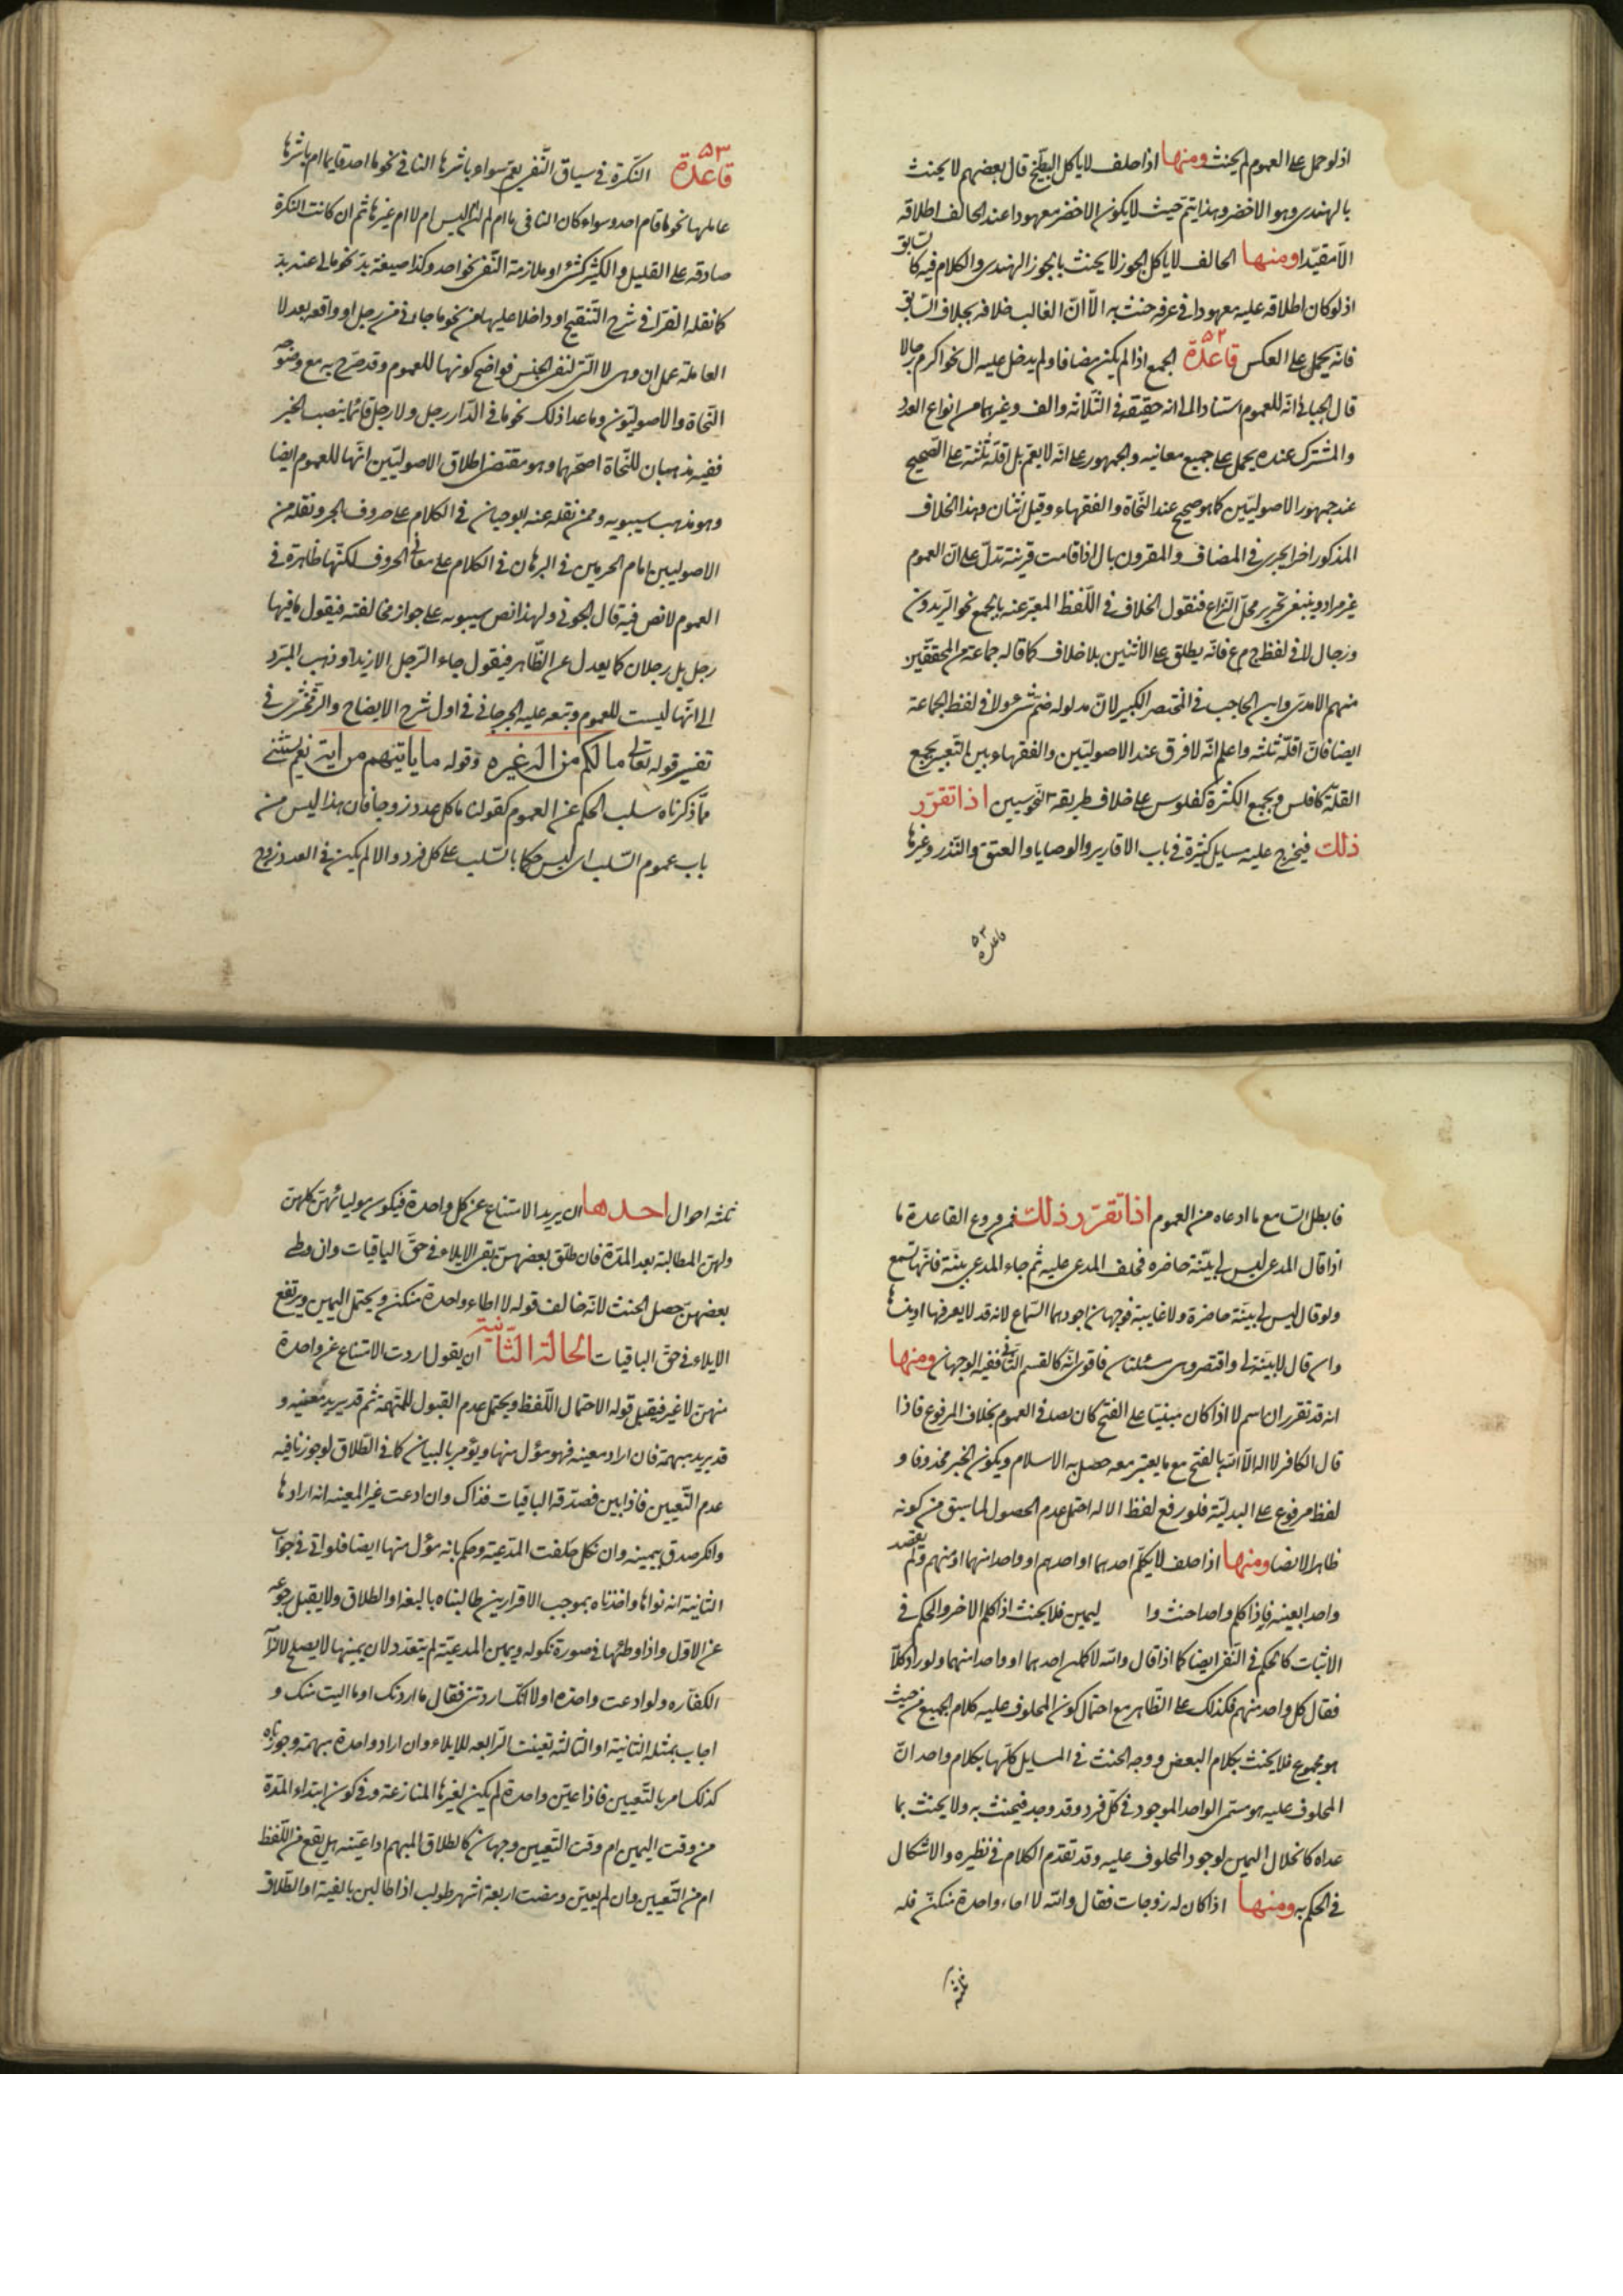 اذ لو حمل على العموم لم يحنث ومنها اذا حلف لا ياكل البطّيخ قال بعضهم لا يحنث
بالهندى وهو الاخضر وهذا يتمّ حيث لا يكون الاخضر معهودا عند الحالف اطلاقه
الّا مقيّدا ومنها الحالف لا ياكل الجوز لا يحنث بالجوز الهندى والكلام فيه كالسابق
اذ لو كان اطلاقه عليه معهودا فى عرفه حنث به الّا انّ الغالب خلافه بخلاف السّابق
فانه يحمل على العكس قاعدة ۵۲ الجمع اذا لم يكن مضافا ولم يدخل عليه ال نحو اكرم رجالا
قال الجبائى انّه للعموم استنادا الى انه حقيقة فى الثّلاثة والف وغيرهما من انواع العدد
والمشترك عنده يحمل على جميع معانيه والجمهور على انّه لا يعمّ بل اقلّه ثلثة على الصّحيح
عند جمهور الاصوليّين كما هو صحيح عند النّحاة والفقهاء وقيل اثنان وهذا الخلاف
المذكور اخرا يجرى فى المضاف والمقرون بال اذا قامت قرينة تدلّ على انّ العموم
غير مراد وينبغى تحرير محلّ النّزاع فنقول الخلاف فى اللّفظ المعبّر عنه بالجمع نحو الزّيدون
ورجال لا فى لفظ ج م ع فانّه يطلق على الاثنين بلا خلاف كما قاله جماعة من المحققّين
منهم الامدى وابن الحاجب فى المختصر الكبير لانّ مدلوله ضمّ شىء ولا فى لفظ الجماعة
ايضا فانّ اقلّه ثلثه واعلم انّه لا فرق عند الاصوليّين والفقهاء بين التّعبير بجمع
القلّة كافلس وبجمع الكثرة كفلوس على خلاف طريقة النّحويين اذا تقرّر
ذلك فيخرج عليه مسايل كثيرة فى باب الاقارير والوصايا والعتق والنّذر وغيرها
قاعده ۵۳
قاعدة ۵۳ النّكرة فى سياق النّفى يعمّ سواء باشرها النافى نحو ما احد قايما ام باشرها
عاملها نحو ما قام احد وسواء كان النافى ما ام لم ام لن ام ليس ام لا ام غيرها ثم ان كانت النكرة
صادقه على القليل والكثير كشىء او ملازمة النّفى نحو احد وكذا صيغة بدّ نحو ما لى عنه بدّ
كما نقله القرافى فى شرح التّنقيح او داخلا عليها من نحو ما جاءنى من رجل او واقعه بعد لا
العاملة عمل ان وهى لا الّتى لنفى الجنس فواضح كونها للعموم وقد صرّح به مع وضوحه
النّحاة والاصوليّون وما عدا ذلك نحو ما فى الدّار رجل ولا رجل قائما بنصب الخبر
ففيه مذهبان للنّحاة اصحّهما وهو مقتضى اطلاق الاصوليّين انّها للعموم ايضا
وهو مذهب سيبويه وممّن نقله عنه ابو حيان فى الكلام على حروف الجر ونقله من
الاصوليين امام الحرمين فى البرهان فى الكلام على معانى الحروف لكنّها ظاهرة فى
العموم لا نص فيه قال الجوينى ولهذا نص سيبويه على جواز مخالفته فيقول ما فيها
رجل بل رجلان كما يعدل عن الظّاهر فيقول جاء الرّجل الا زيدا وذهب المبرّد
الى انّها ليست للعموم وتبعه عليه الجرجانى فى اول شرح الايضاح والزّمخشرى فى
تفسير قوله تعالى ما لكم من اله غيره وقوله ما ياتيهم من آية نعم يستثنى
مّما ذكرناه سلب الحكم عن العموم كقولنا ما كل عدد زوجا فان هذا ليس من
باب عموم السّلب اى ليس حكما بالسّلب على كل فرد والا لم يكن فى العدد زوج
فابطل السّامع ما ادعاه من العموم اذا تقرّر ذلك فمن فروع القاعدة ما
اذا قال المدعى ليس لى بيّنة حاضره فحلف المدعى عليه ثم جاء المدعى ببيّنة فانّها تسمع
ولو قال ليس لى بينة حاضرة ولا غايبة فوجهان اجودهما السّماع لانه قد لا يعرفها او ينساها
وان قال لا بيّنة لى واقتصر وهى مسئلتنا فاقول انّه كالقسم الثّانى ففيه الوجهان ومنها
انه قد تقرر ان اسم لا اذا كان مبنيّا على الفتح كان نصا فى العموم بخلاف المرفوع فاذا
قال الكافر لا اله الّا الله بالفتح مع ما يعتبر معه حصل به الاسلام ويكون الخبر محذوفا و
لفظ مرفوع على البدليّة فلو رفع لفظ الاله احتمل عدم الحصول لما سبق من كونه
ظاهرا لا نصا ومنها اذا حلف لا يكلّم احدهما او احدهم او واحدا منهما او منهم ولم يقصد
واحدا بعينه فاذا كلم واحدا حنث وا ليمين فلا يحنث اذا كلم الاخر والحكم فى
الاثبات كالحكم فى النّفى ايضا كما اذا قال والله لا كلمن احدهما او واحدا منهما ولو زاد كلّا
فقال كل واحد منهم فكذلك على الظّاهر مع احتمال كون المحلوف عليه كلام الجميع من حيث
هو مجموع فلا يحنث بكلام البعض ووجه الحنث فى المسايل كلّها بكلام واحد انّ
المحلوف عليه هو مسمّى الواحد الموجود فى كلّ فرد وقد وجد فيحنث به ولا يحنث بما
عداه كانحلال اليمين لوجود المحلوف عليه وقد تقدّم الكلام فى نظيره والاشكال
فى الحكم به ومنها اذا كان له زوجات فقال والله لا اطاء واحدة منكنّ فله
ثلثه
ثلثه احوال احدها ان يريد الامتناع عن كل واحدة فيكون موليا منهنّ كلهنّ
ولهنّ المطالبة بعد المدّة فان طلّق بعضهنّ بقى الايلاء فى حقّ الباقيات وان وطى
بعضهنّ حصل الحنث لانّه خالف قوله لا اطاء واحدة منكنّ ويحتمل اليمين ويرتفع
الايلاء فى حقّ الباقيات الحالة الثّانية ان يقول اردت الامتناع عن واحدة
منهنّ لا غير فيقبل قوله لاحتمال اللّفظ ويحتمل عدم القبول للتّهمة ثم قد يريد معينه و
قد يريد مبهمة فان اراد معينه فهو مؤل منها ويؤمر بالبيان كما فى الطّلاق لو جوزنا فيه
عدم التّعيين فاذا بين فصدّقه الباقيات فذاك وان ادعت غير المعينه انه ارادها
وانكر صدق بيمينه وان نكل حلفت المدّعية وحكم بانه مؤل منها ايضا فلو اتى فى جواب
الثانية انه نواها واخذناه بموجب الاقرارين طالبناه بالفئة او الطلاق ولا يقبل رجوعه
عن الاول واذا وطئها فى صورة نكوله ويمين المدعيّة لم يتعدد لان يمينها لا يصلح لالزام
الكفّاره ولو ادعت واحدة اولا انّك اردتنى فقال ما اردتك او ما اليت منك و
اجاب بمثله الثانية او الثالثه تعينت الرّابعه للايلاء وان اراد واحدة مبهمة وجوزناه
كذلك امر بالتّعيين فاذا عيّن واحدة لم يكن لغيرها المنازعة وفى كون ابتداء المدّة
من وقت اليمين ام وقت التّعيين وجهان كالطلاق المبهم اذا عيّنه هل يقع من اللّفظ
ام من التّعيين وان لم يعيّن ومضت اربعة اشهر طولب اذا طالبن بالفئة او الطلاق